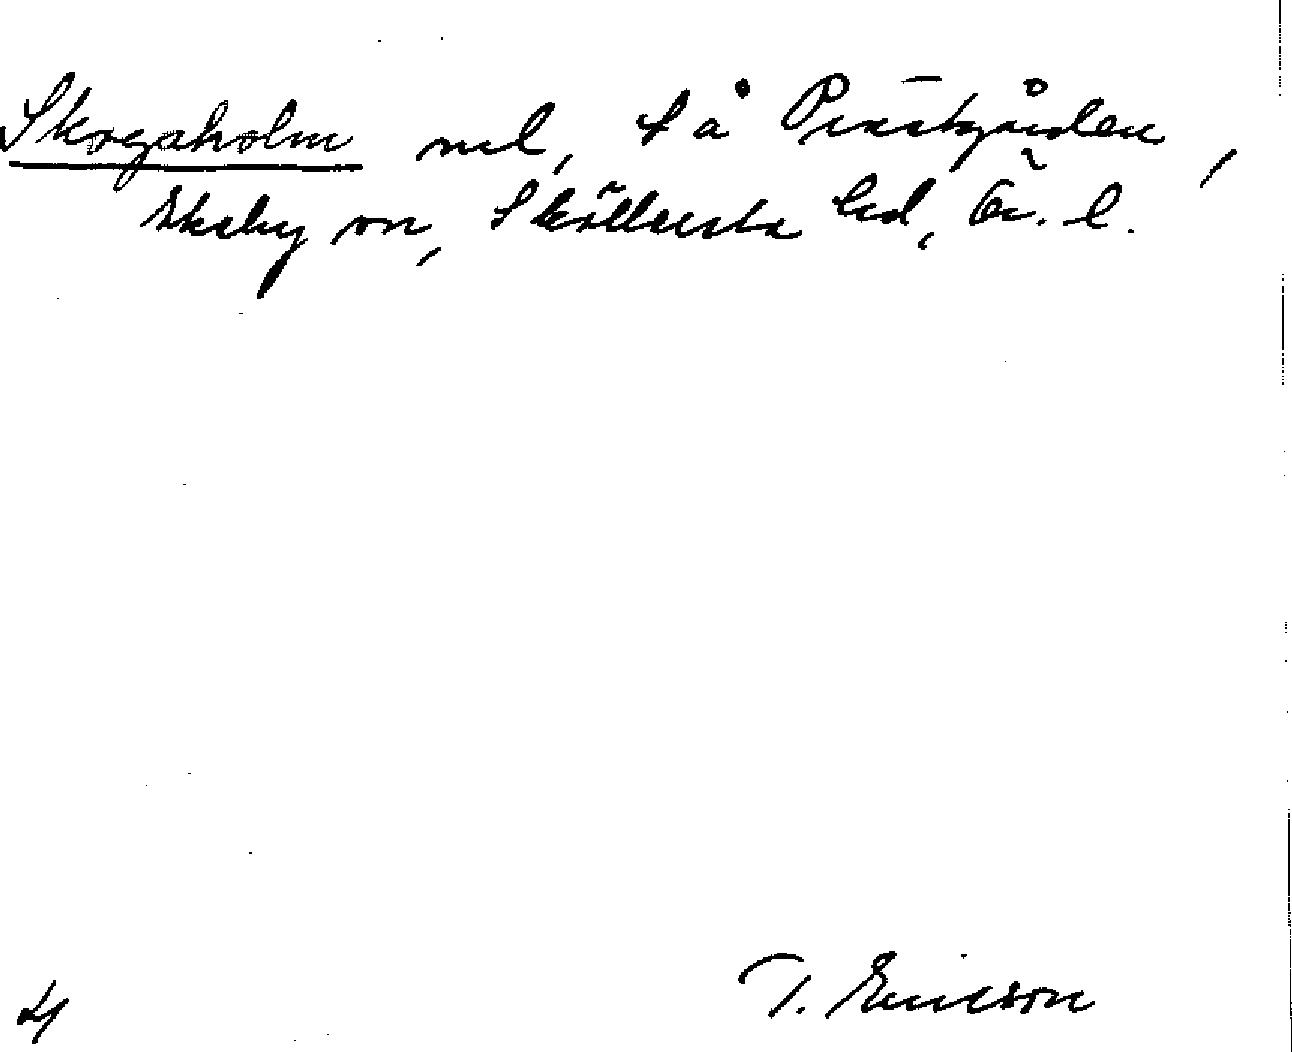 Skogaholm nel, på Prästgården,
Ekeby sn, Sköllersta hd, Ör. l.
T. Ericson